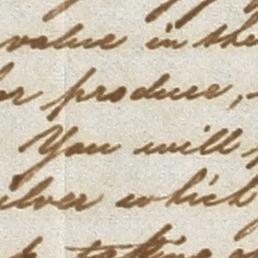 value in the
or produce,
You will
ilver which
taking